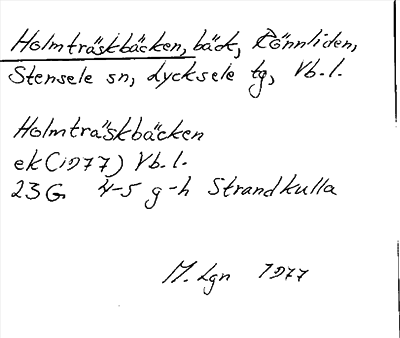 Holmträskbäcken, bäck, Rönnliden,
Stensele sn, Lycksele tg, Vb.l.
Holmträskbäcken
ek (1977) Vb.l.
23 G 4-5 g-h Strandkulla
M. Lgn 1977